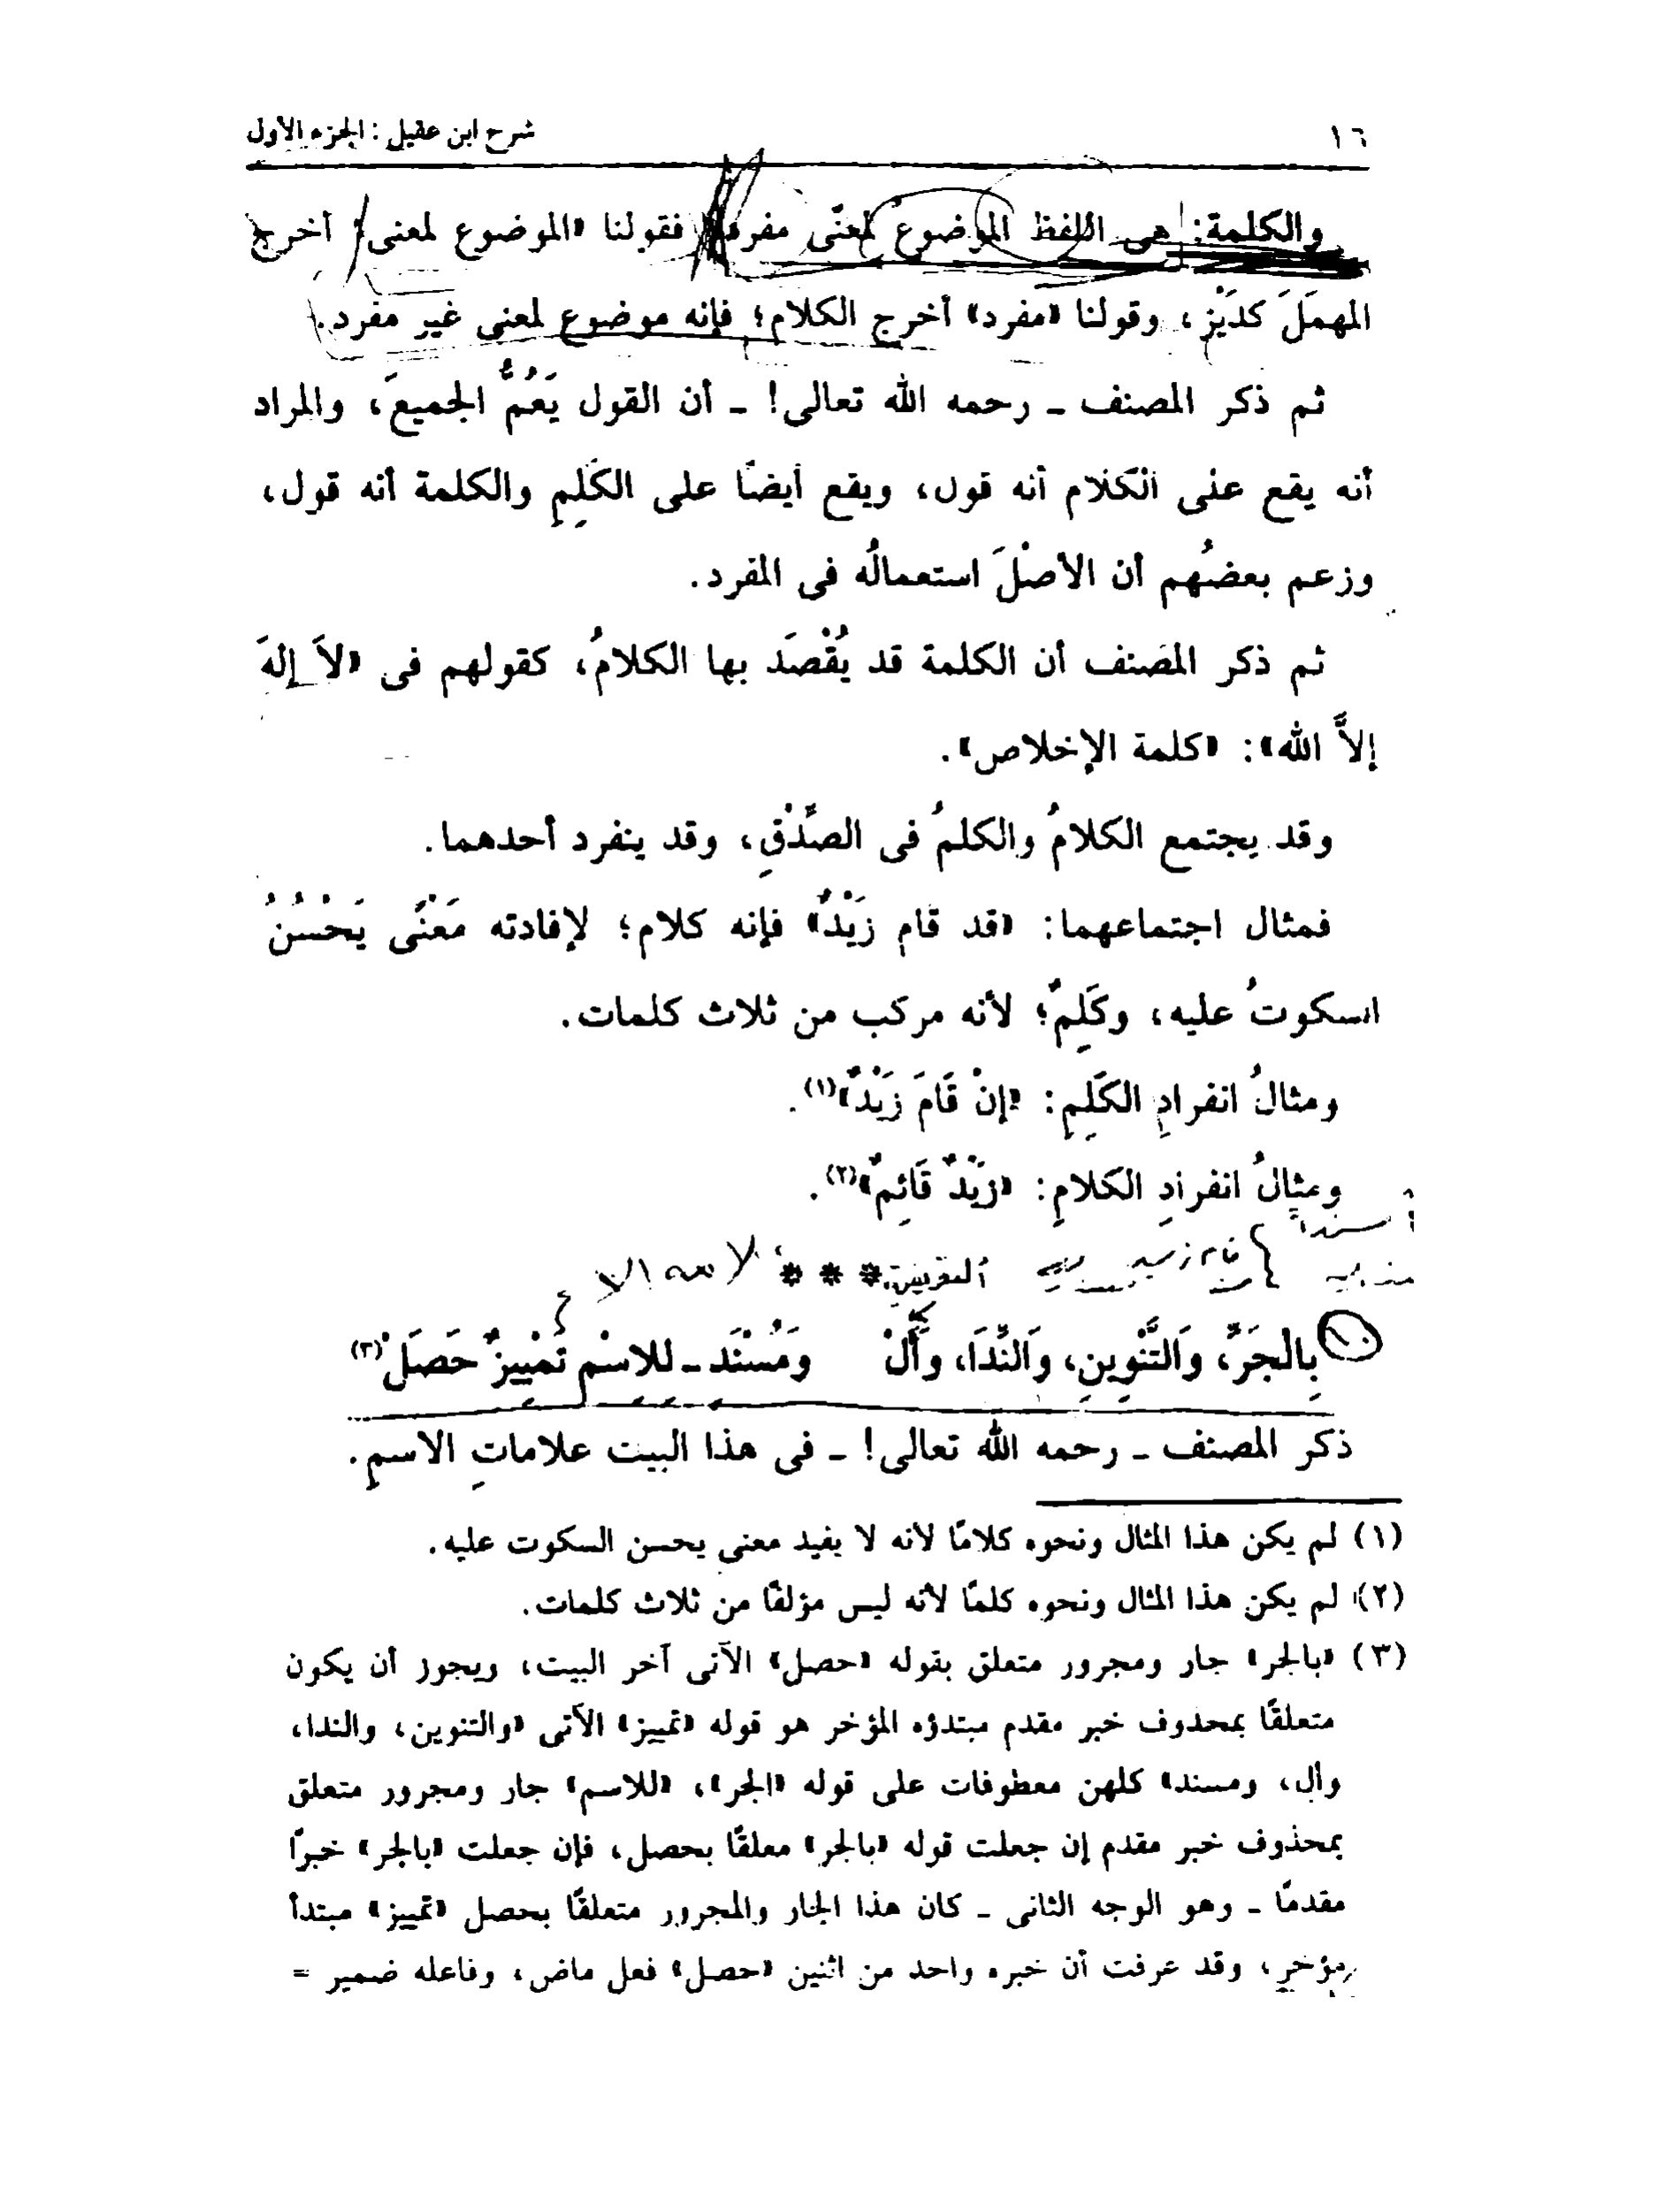 ١٦ شرح ابن عقيل : الجزء الأول
والكلمة: هى اللفظ الموضوع لمعنًى مفرد؛ فقولنا «الموضوع لمعنى» أخرج
المهمَلَ كدَيْز، وقولنا «مفرد» أخرج الكلام؛ فإنه موضوع لمعنى غير مفرد.
ثم ذكر المصنف ـ رحمه الله تعالى! ـ أن القول يَعُمُّ الجميعَ، والمراد
أنه يقع على الكلام أنه قول، ويقع أيضًا على الكَلِمِ والكلمة أنه قول،
وزعم بعضُهم أن الأصْلَ استعمالُه فى المفرد.
ثم ذكر المصنف أن الكلمة قد يُقْصَد بها الكلامُ، كقولهم فى «لاَ إلهَ
إلاَّ الله»: «كلمة الإخلاص».
وقد يجتمع الكلامُ والكلمُ فى الصِّدْقِ، وقد ينفرد أحدهما.
فمثال اجتماعهما: «قد قام زَيْدٌ» فإنه كلام؛ لإفادته مَعْنًى يَحْسُنُ
السكوتُ عليه، وكَلِمٌ؛ لأنه مركب من ثلاث كلمات.
ومثالُ انفرادِ الكَلِمِ: «إنْ قَامَ زَيْدٌ»(١).
ومثالُ انفرادِ الكلامِ: «زَيْدٌ قَائِمٌ»(٢).
قام زيد
* * *
بِالْجَرِّ، وَالتَّنْوِينِ، وَالنِّدَا، وَأَلْ وَمُسْنَدٍ ـ لِلاِسْمِ تَمْيِيزٌ حَصَلْ(٣)
ذكر المصنف ـ رحمه الله تعالى! ـ فى هذا البيت علاماتِ الاسمِ.
(١) لم يكن هذا المثال ونحوه كلامًا لأنه لا يفيد معنى يحسن السكوت عليه.
(٢) لم يكن هذا المثال ونحوه كلمًا لأنه ليس مؤلفًا من ثلاث كلمات.
(٣) «بالجر» جار ومجرور متعلق بقوله «حصل» الآتى آخر البيت، ويجوز أن يكون
متعلقًا بمحذوف خبر مقدم مبتدؤه المؤخر هو قوله «تمييز» الآتى «والتنوين، والندا،
وأل، ومسند» كلهن معطوفات على قوله «الجر»، «للاسم» جار ومجرور متعلق
بمحذوف خبر مقدم إن جعلت قوله «بالجر» معلقًا بحصل، فإن جعلت «بالجر» خبرًا
مقدمًا ـ وهو الوجه الثانى ـ كان هذا الجار والمجرور متعلقًا بحصل «تمييز» مبتدأ
مؤخر، وقد عرفت أن خبره واحد من اثنين «حصل» فعل ماض، وفاعله ضمير =